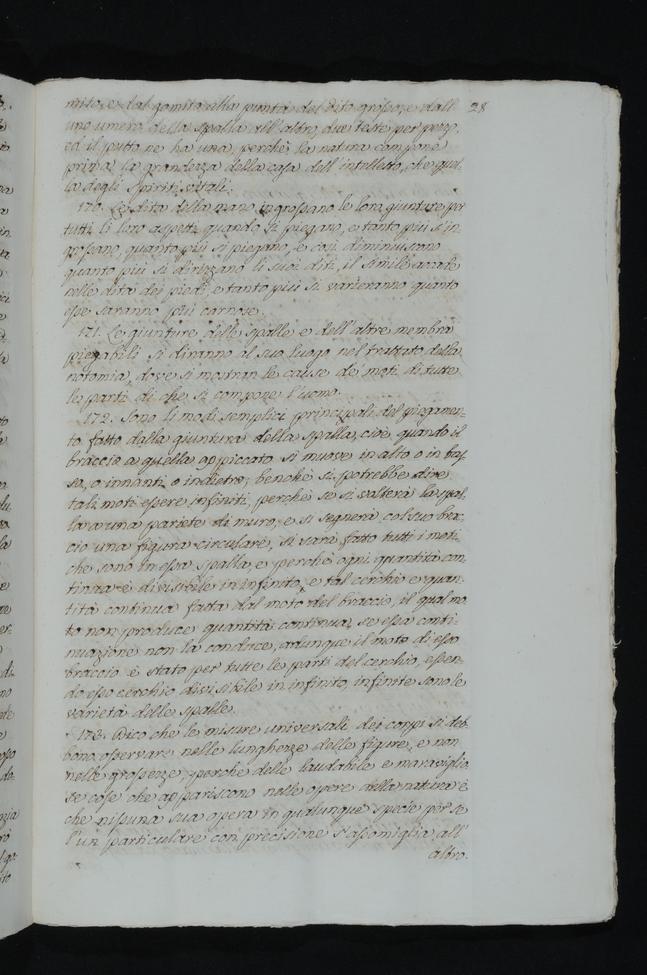 mito, e dal gomito alla punta del dito grosso, e dall' 28
uno umero della spalla all' altro, due teste per pezzo,
ed il putto ne ha una, perchè la natura compone
prima la grandezza della casa dell' intelletto, che quel-
la degli spiriti vitali.
170. Le dita della mano ingrossano le loro giunture per
tutti li loro aspetti quando si piegano, e tanto più s'in-
grossano, quanto più si piegano, e così diminuiscono
quanto più si dirizzano li suoi diti, il simile accade
nelle dita dei piedi, e tanto più si varieranno quanto
esse saranno più carnose.
171. Le giunture delle spalle e dell' altre membra
piegabili si diranno al suo luogo nel trattato della
notomia, dove si mostran le cause de' moti di tutte
le parti di che si compone l'uomo.
172. Sono li modi semplici principali del piegamen-
to fatto dalla giuntura della spalla, cioè, quando il
braccio a quella appiccato si muove in alto o in bas-
so, o innanti, o indietro, benchè si potrebbe dire
tali moti essere infiniti, perchè se si volterà la spal-
la a una pariete di muro, e si segnerà col suo brac-
cio una figura circulare, si sarà fatto tutti i moti,
che sono in essa spalla, e perchè ogni quantità con-
tinua è divisibile in infinito, e tal cerchio è quan-
tità continua fatta dal moto del braccio, il qual mo-
to non produce quantità continua, se essa conti-
nuazione non la conduce, adunque il moto di esso
braccio è stato per tutte le parti del cerchio, essen-
do esso cerchio divisibile in infinito, infinite sono le
varietà delle spalle.
173. Dico che le misure universali dei corpi si deb-
bono osservare nelle lunghezze delle figure, e non
nelle grossezze, perchè delle laudabile e maraviglio-
se cose che appariscono nelle opere della natura è
che nissuna sua opera in qualunque specie per se
l'un particulare con precisione s'assomiglia all'
altro.